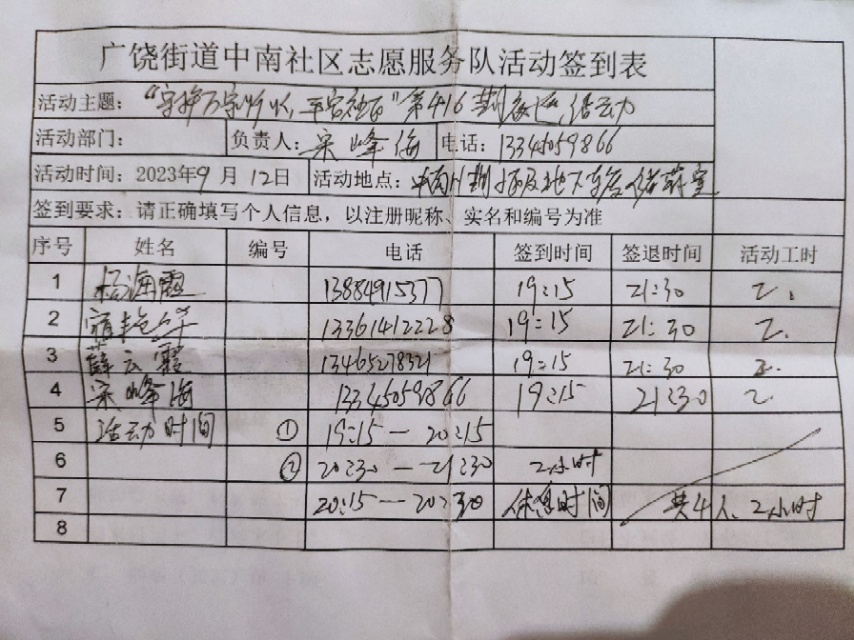 广饶街道中南社区志愿服务队活动签到表
活动主题："守护万家灯火,平安社区"第416期夜巡活动
活动部门： 负责人：宋峰海 电话：13345059866
活动时间：2023年9月12日 活动地点：中南 期 及地下车 储藏室
签到要求：请正确填写个人信息，以注册昵称、实名和编号为准
序号 姓名 编号 电话 签到时间 签退时间 活动工时
1 杨海霞 13884915377 19:15 21:30 2.
2 艳华 13361412228 19:15 21:30 2.
3 薛云霞 13465278321 19:15 21:30 2.
4 宋峰海 13345059866 19:15 21:30 2.
5 活动时间 ① 19:15—20:15
6 ② 20:30—21:30 2小时
7 20:15—20:30 休息时间 共4人、2小时
8